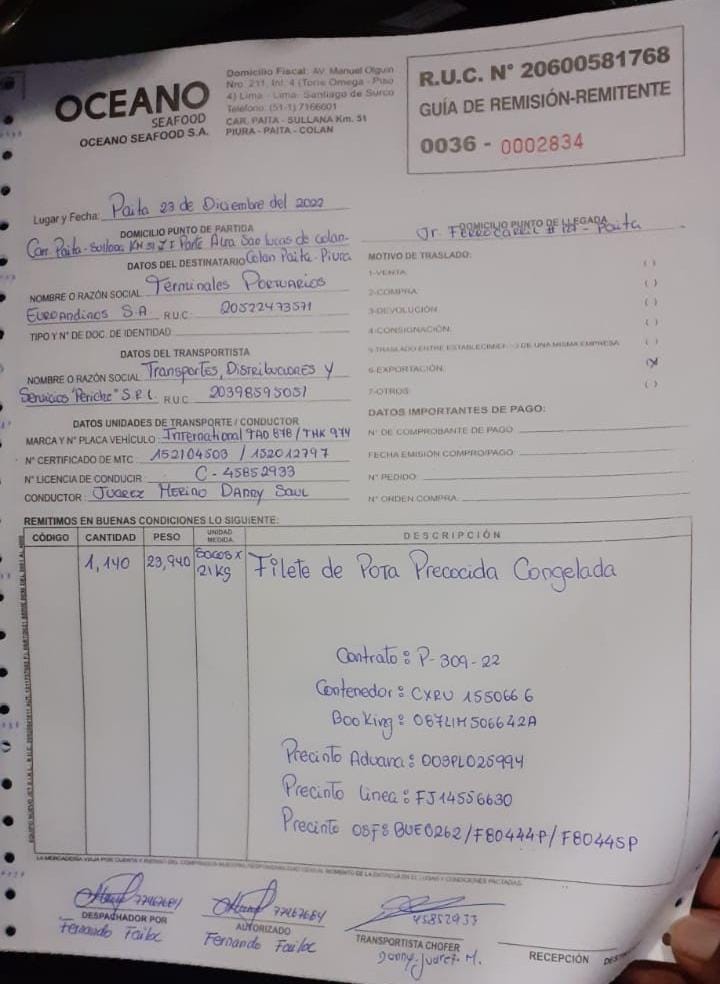 OCEANO
SEAFOOD
OCEANO SEAFOOD S.A.
Domicilio Fiscal: AV. Manuel Olguin
Nro. 211, Int. 4 (Torre Omega - Piso
4) Lima - Lima- Santiago de Surco
Teléfono: (51-1) 7166601
CAR. PAITA - SULLANA Km. 51
PIURA - PAITA - COLAN
R.U.C. N° 20600581768
GUÍA DE REMISIÓN-REMITENTE
0036 - 0002834
Lugar y Fecha: Paita 23 de Diciembre del 2022
DOMICILIO PUNTO DE PARTIDA
Carr. Paita - Sullana KM 51 Z I Parte Alta San Lucas de Colan-
Colan Paita - Piura
DOMICILIO PUNTO DE LLEGADA
Jr. Ferrocarril # - Paita
DATOS DEL DESTINATARIO
NOMBRE O RAZÓN SOCIAL Terminales Portuarios
Euroandinos S.A R.U.C. 20522473571
TIPO Y N° DE DOC. DE IDENTIDAD
DATOS DEL TRANSPORTISTA
NOMBRE O RAZÓN SOCIAL Transportes, Distribuciones y
Servicios "Periche" S.R.L R.U.C 20398595051
DATOS UNIDADES DE TRANSPORTE / CONDUCTOR
MARCA Y N° PLACA VEHÍCULO: International TAO 878 / THK 974
N° CERTIFICADO DE MTC: 152104503 / 152012797
N° LICENCIA DE CONDUCIR: C - 45852933
CONDUCTOR: Juarez Merino Danny Saul
MOTIVO DE TRASLADO:
1-VENTA: ( )
2-COMPRA: ( )
3-DEVOLUCIÓN: ( )
4-CONSIGNACIÓN: ( )
5-TRASLADO ENTRE ESTABLECIMIENTOS DE UNA MISMA EMPRESA ( )
6-EXPORTACIÓN: (X)
7-OTROS: ( )
DATOS IMPORTANTES DE PAGO:
N° DE COMPROBANTE DE PAGO
FECHA EMISIÓN COMPRO/PAGO:
N° PEDIDO:
N° ORDEN COMPRA:
REMITIMOS EN BUENAS CONDICIONES LO SIGUIENTE:
CÓDIGO CANTIDAD PESO UNIDAD MEDIDA DESCRIPCIÓN
1,140 23,940 Sacos x 21 Kg Filete de Pota Precocida Congelada
Contrato: P-309-22
Contenedor: CXRU 155066 6
Booking: 087LIM506642A
Precinto Aduana: 003PL025994
Precinto Linea: FJ14556630
Precinto OSFS BUE0262/F80444P/F80445P
77467684
DESPACHADOR POR
Fernando Failoc
77467684
AUTORIZADO
Fernando Failoc
45852933
TRANSPORTISTA CHOFER
Danny Juarez M.
RECEPCIÓN